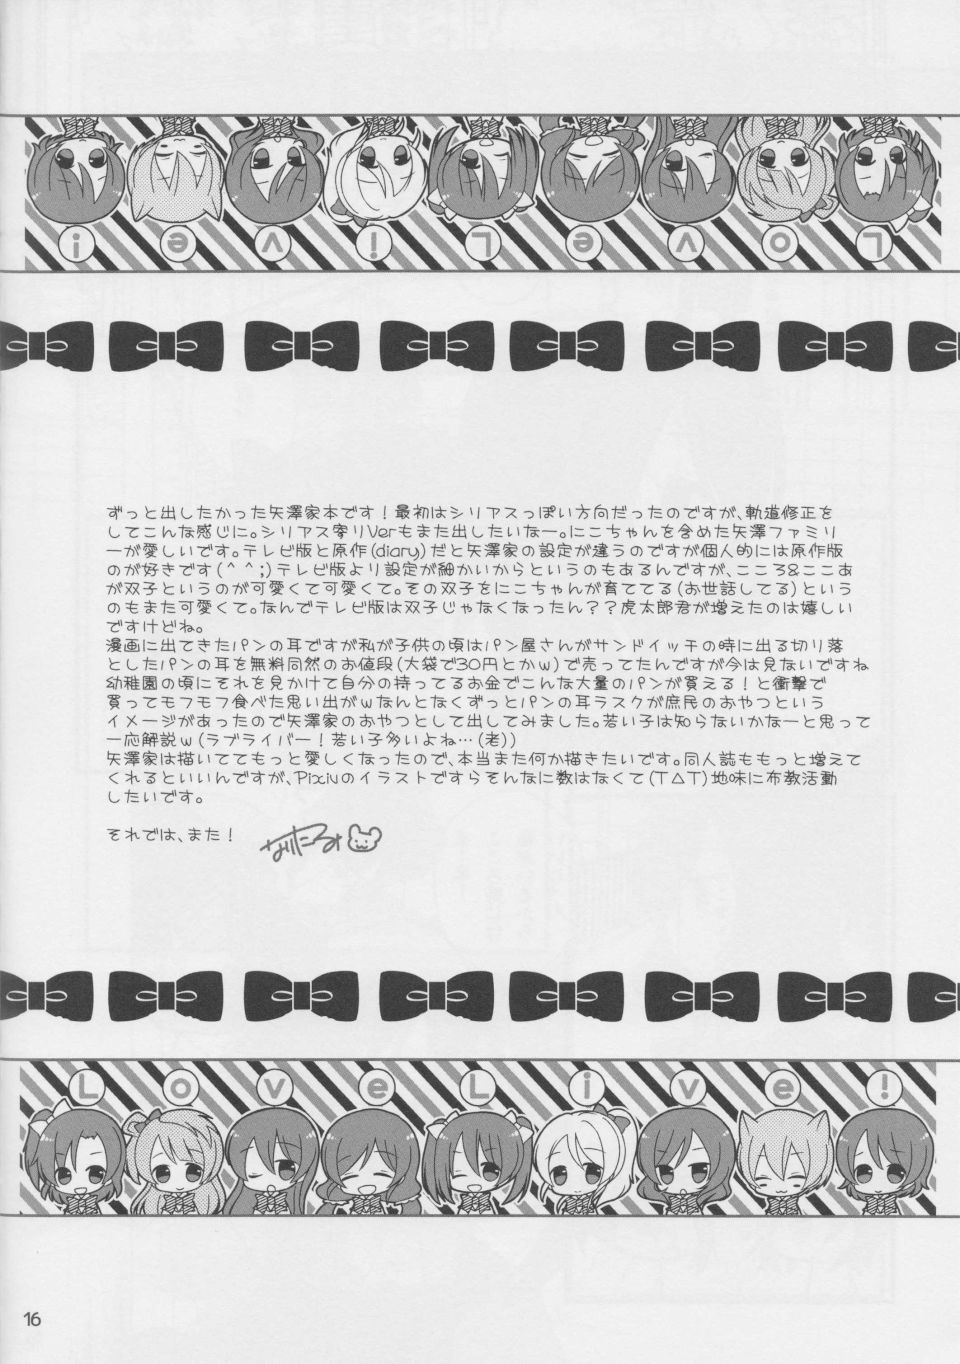 Love Live!
ずっと出したかった矢澤家本です！最初はシリアスっぽい方向だったのですが、軌道修正を
してこんな感じに。シリアス寄りVerもまた出したいなー。にこちゃんを含めた矢澤ファミリ
ーが愛しいです。テレビ版と原作(diary)だと矢澤家の設定が違うのですが個人的には原作版
のが好きです(＾＾;)テレビ版より設定が細かいからというのもあるんですが、こころ&ここあ
が双子というのが可愛くて可愛くて。その双子をにこちゃんが育ててる(お世話してる)という
のもまた可愛くて。なんでテレビ版は双子じゃなくなったん？？虎太郎君が増えたのは嬉しい
ですけどね。
漫画に出てきたパンの耳ですが私が子供の頃はパン屋さんがサンドイッチの時に出る切り落
としたパンの耳を無料同然のお値段(大袋で30円とかw)で売ってたんですが今は見ないですね
幼稚園の頃にそれを見かけて自分の持ってるお金でこんな大量のパンが買える！と衝撃で
買ってモフモフ食べた思い出がwなんとなくずっとパンの耳ラスクが庶民のおやつという
イメージがあったので矢澤家のおやつとして出してみました。若い子は知らないかなーと思って
一応解説w(ラブライバー！若い子多いよね…(老))
矢澤家は描いててもっと愛しくなったので、本当また何か描きたいです。同人誌ももっと増えて
くれるといいんですが、Pixivのイラストですらそんなに数はなくて(T△T)地味に布教活動
したいです。
それでは、また！
なりたるみ
Love Live!
16